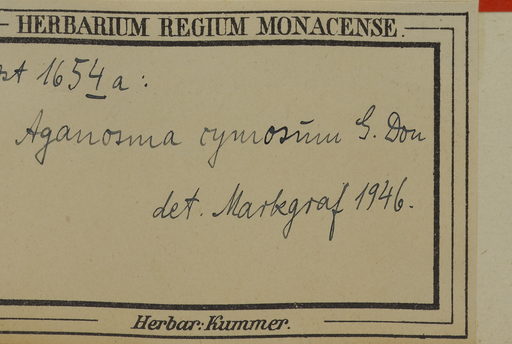 HERBARIUM REGIUM MONACENSE.
1654a:
Aganosma cymosum G. Don
det. Markgraf 1946.
Herbar: Kummer.